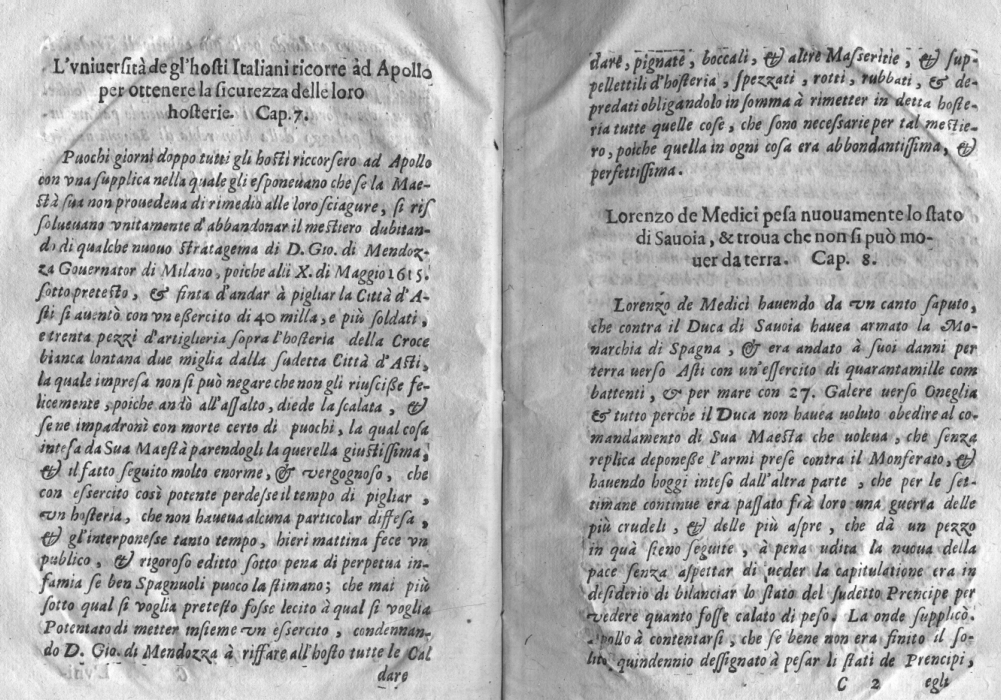 L'vniuersità de gl'hosti Italiani ricorre ad Apollo
per ottenere la sicurezza delle loro
hosterie. Cap. 7.
Puochi giorni doppo tutti gli hosti riccorsero ad Apollo
con vna supplica nella quale gli esponeuano che se la Mae-
stà sua non prouedeua di rimedio alle loro sciagure, si ris
solueuano vnitamente d'abbandonar il mestiero dubitan-
do di qualche nuouo stratagema di D. Gio. di Mendoz-
za Gouernator di Milano, poiche alli X. di Maggio 1615.
sotto pretesto, & finta d'andar à pigliar la Città d'A-
sti si auentò con vn eßercito di 40 milla, e più soldati,
e trenta pezzi d'artiglieria sopra l'hosteria della Croce
bianca lontana due miglia dalla sudetta Città d'Asti,
la quale impresa non si può negare che non gli riusciße fe-
licemente, poiche andò all'assalto, diede la scalata, &
se ne impadronì con morte certo di puochi, la qual cosa
intesa da Sua Maestà parendogli la querella giustissima,
& il fatto seguito molto enorme, & vergognoso, che
con essercito così potente perdesse il tempo di pigliar,
vn hosteria, che non haueua alcuna particolar diffesa,
& gl'interponesse tanto tempo, hieri mattina fece vn
publico, & rigoroso editto sotto pena di perpetua in-
famia se ben Spagnuoli puoco la stimano; che mai più
sotto qual si voglia pretesto fosse lecito à qual si voglia
Potentato di metter insieme vn essercito, condennan-
do D. Gio. di Mendozza à riffare all'hosto tutte le Cal
dare
dare, pignate, boccali, & altre Masseritie, & sup-
pellettili d'hosteria, spezzati, rotti, rubbati, & de-
predati obligandolo in somma à rimetter in detta hoste-
ria tutte quelle cose, che sono necessarie per tal mestie-
ro, poiche quella in ogni cosa era abbondantissima, &
perfettissima.
Lorenzo de Medici pesa nuouamente lo stato
di Sauoia, & troua che non si può mo-
uer da terra. Cap. 8.
Lorenzo de Medici hauendo da vn canto saputo,
che contra il Duca di Sauoia hauea armato la Mo-
narchia di Spagna, & era andato à suoi danni per
terra uerso Asti con un'essercito di quarantamille com
battenti, & per mare con 27. Galere uerso Oneglia
& tutto perche il Duca non hauea uoluto obedire al co-
mandamento di Sua Maestà che uoleua, che senza
replica deponeße l'armi prese contra il Monferato, &
hauendo hoggi inteso dall'altra parte, che per le set-
timane continue era passato frà loro una guerra delle
più crudeli, & delle più aspre, che dà un pezzo
in quà sieno seguite, à pena udita la nuoua della
pace senza aspettar di ueder la capitulatione era in
desiderio di bilanciar lo stato del sudetto Prencipe per
vedere quanto fosse calato di peso. La onde supplicò
Apollo à contentarsi, che se bene non era finito il so-
lito quindennio dessignato à pesar li stati de Prencipi,
C 2 egli